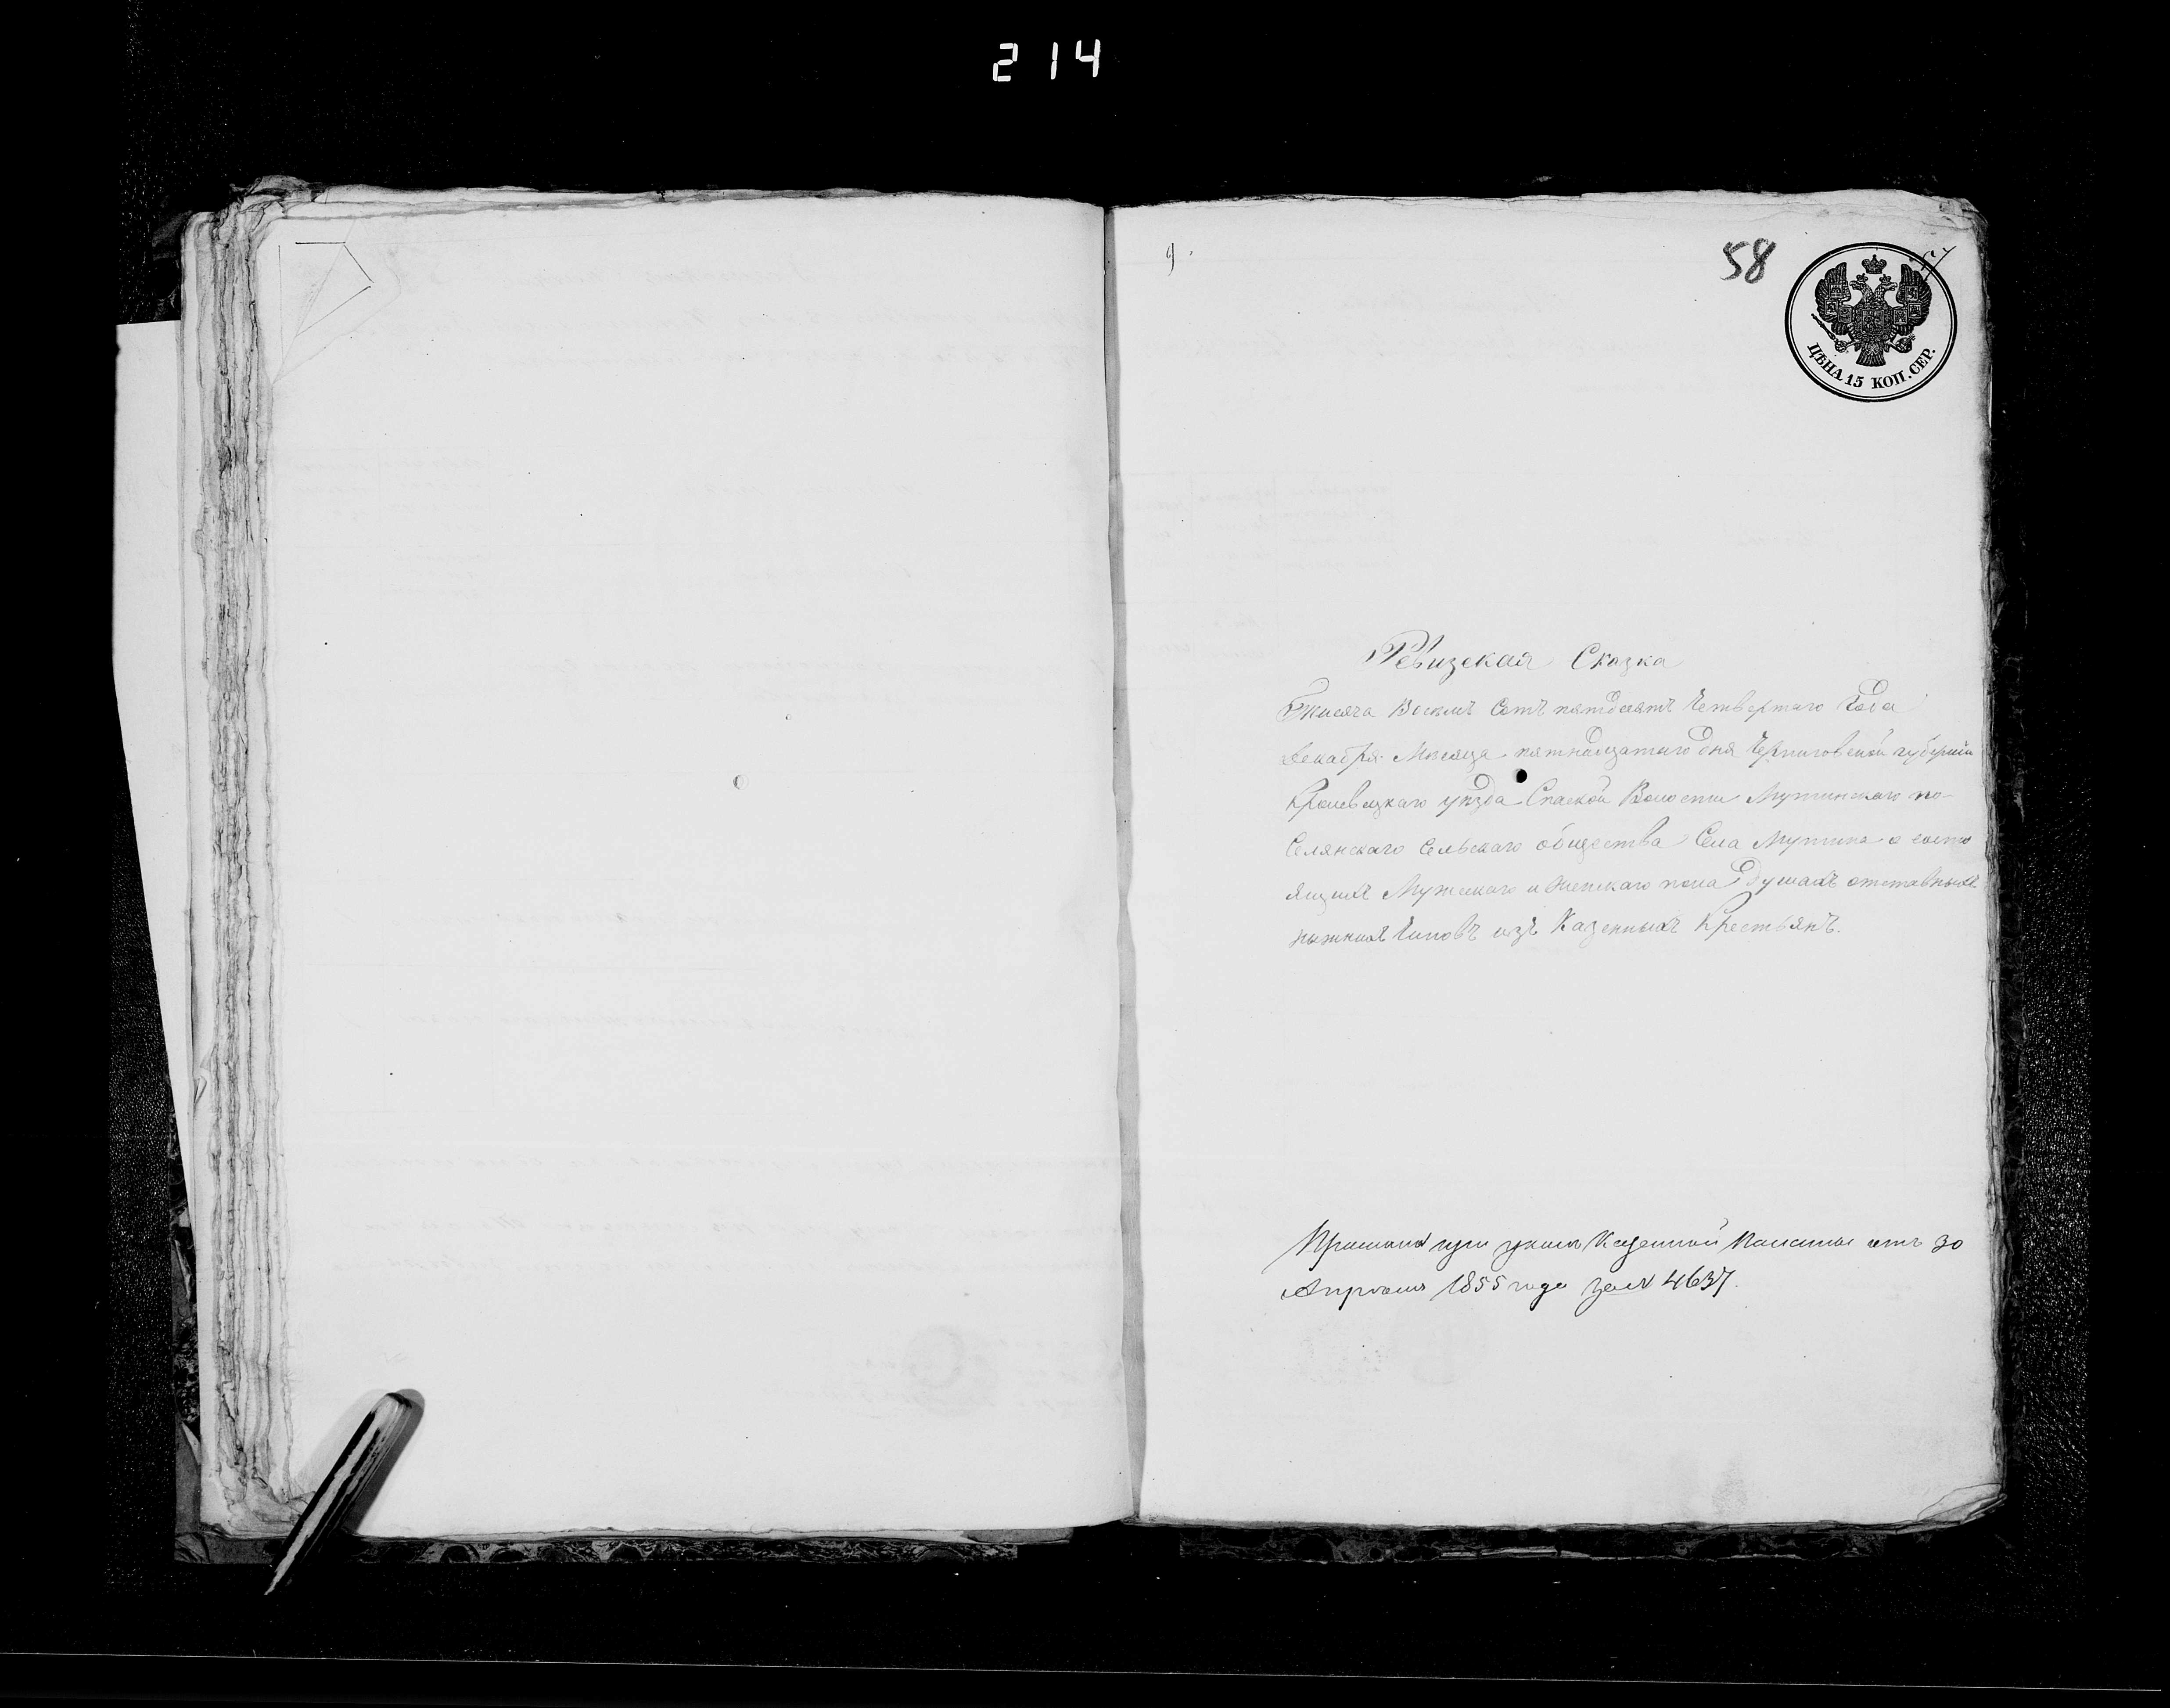 214
9.
58
ЦѢНА 15 КОП. СЕР.
Ревизская Сказка
Тысяча Восемь Сотъ пятдесятъ Четвертаго Года
Декабря Мѣсяца пятнадцатаго дня Черниговской губерніи
Кролевецкаго уѣзда Спаской Волости Мутинскаго по-
Селянскаго Сельскаго общества Села Мутина о состо
ящихъ Мужескаго и Женскаго пола душахъ отставныхъ
нижнихъ Чиновъ изъ Казенныхъ Крестьянъ.
при указѣ Казенной Палаты отъ 30
Апрѣля 1855 года за № 4637.